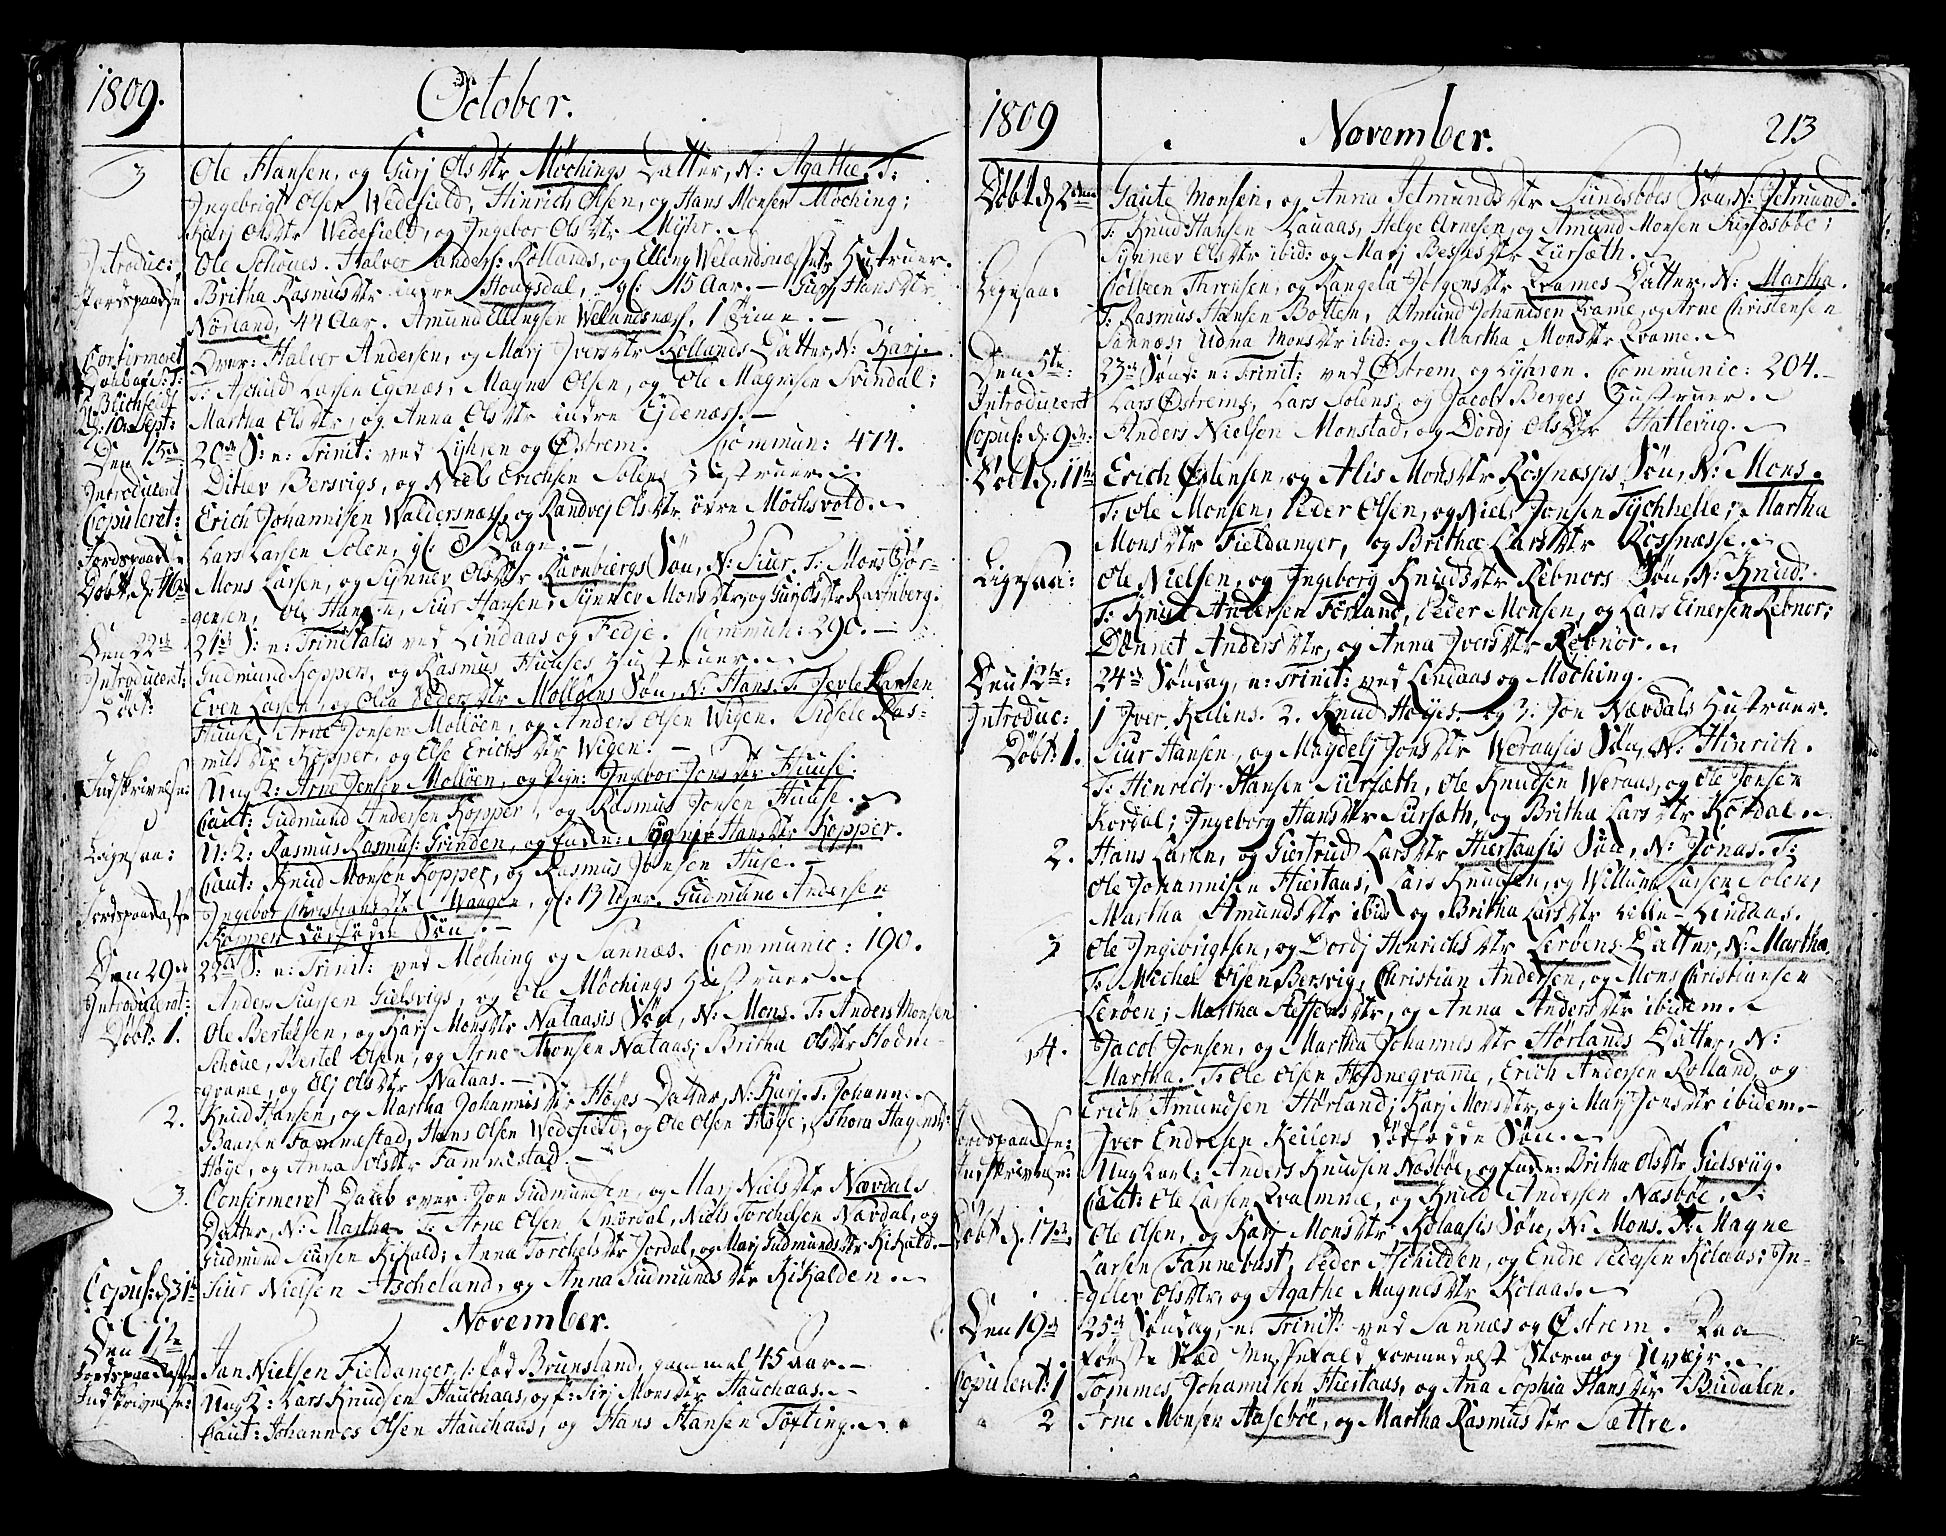 1809. October.
3 Ole Hansen, og Gurj Ols Dtr Møchings Datter, N: Agathe. T:
Ingebrigt Olsen Wedefield, Hinrich Olsen, og Hans Monsen Møching;
Karj Ols Dtr Wedefield, og Ingebor Ols Dtr Myter.
Introduc: Ole Schoues. Halver Anders: Rollands, og Elling Welandsnæss Hustruer.
Jordspaadse Britha Rasmus Dtr indre Hougsdal, gl: 15 Aar. – Gurj Hans Dtr
Nørland, 44 Aar. Amund Ellingsen Welandsnæss, 1 Time. –
Confirmeret Over: Halver Andersen, og Marj Ivers Dtr Rollands Datter, N: Karj.
T: Aschild Larsen Egenæs, Magne Olsen, og Ole Magnesen Svindal;
d: 10de Sept: Martha Ols Dtr, og Anna Ols Dtr indre Eidenæss. –
Den 15de 20de S: e: Trinit: ved Lyhren og Østrem. Commun: 474.
Introduceret Ditlev Bersvigs, og Niels Erichsen Solens Hustruer.
Copuleret: Erich Johannisen Waldersnæss, og Randvej Ols Dtr øvre Mochsvold.
Jordspaadse Lars Larsen Solen, gl: 8 Dage. –
Døbt d: 16de Mons Larsen, og Synnev Ols Dtr Ravnbergs Søn, N: Siur. T: Mons Jør-
gensen, Ole Hansen, Siur Hansen, Synnev Mons Dtr, og Gurj Ols Dtr Ravnberg.
Den 22de 21de S: e: Trinitatis ved Lindaas og Fedje. Commun: 290. –
Introduceret: Gudmund Koppers, og Rasmus Huuses Hustruer.
Døbt: Even Larsen, og Olva Peders Dtr Molløens Søn, N: Hans. T: Jerle Larsen
Huuse, Arne Jonsen Molløen, og Anders Olsen Wigen. Sidsele Ras-
mus Dtr Kopper, og Else Erichs Dtr Wigen. –
Indskrivelse: Ung K: Arne Jensen Molløen, og Pign: Ingebor Jons Dtr Huuse.
Caut: Gudmund Andersen Kopper, og Rasmus Jonsen Huuse.
Ligesaa: U: K: Rasmus Rasmus: Grinden, og Enke: Hans Dtr Kopper.
Caut: Knud Monsen Kopper, og Rasmus Jonsen Huse. –
Jordspaadsse Ingebor Christians Dtr Waagen, gl: 13 Uger. Gudmund Andersen
Koppers dødfødde Søn. –
Den 29de 22de S: e: Trinit: ved Møching og Sannæs. Communic: 190.
Introduceret: Anders Siursen Gulsvigs, og Ole Møchings Hustruer.
Døbt: 1. Ole Bertelsen, og Karj Mons Dtr Nataasis Søn, N: Mons. T: Anders Monsen
Schoue, Bertel Olsen, og Arne Monsen Nataas; Britha Ols Dtr Hodne-
grame, og Elj Ols Dtr Nataas. –
2. Knud Hansen, og Martha Johannis Dtr Høyes Datter, N: Karj. T: Johanne
Baarsen Fammestad, Hans Olsen Wedefield, og Ole Olsen Høye; Thora Hagens Dtr
Høye, og Anna Ols Dtr Fammestad. –
3. Confirmeret Daab over: Jon Gudmundsen, og Marj Niels Dtr Nævdals
Datter, N: Martha. T: Arne Olsen Smørdal, Niels Torchelsen Nævdal, og
Gudmund Siursen Kikald; Anna Torchels Dtr Jordal, og Marj Gudmunds Dtr Kikald.
Copul: d: 31te Siur Nielsen Ascheland, og Anna Gudmunds Dtr Kikalden.
November.
Den 1te
Jordspaadsse Jan Nielsen Fieldanger, /: fød Brunsland, gammel 45 Aar. –
Indskrivelse: Ung K: Lars Knudsen Hauchaas, og f: Sirj Mons Dtr Hauchaas. –
Caut: Johannes Olsen Hauchaas, og Hans Hansen Tøfting.
1809 November. 213
Døbt d: 2den Gaute Monsen, og Anna Jetmunds Dtr Lundsbøes Søn, N: Jetmund.
T: Knud Hansen Lauaas, Helge Arnesen, og Amund Monsen Lundsbøe;
Synnev Ols Dtr ibid: og Marj Dtr Lursæth.
Ligesaa Colbeen Thronsen, og Rangela Jørgens Dtr Drames Datter, N: Martha.
T: Rasmus Hansen Botten, Amund Johannisen Drame, og Arne Christensen
Sannæs; Udna Mons Dtr ibid: og Martha Mons Dtr Drame.
Den 5te: 23de Sønd: e: Trinit: ved Østrem og Lyhren. Communic: 204. –
Introduceret Lars Østrems, Lars Solens, og Jacob Berges Hustruer.
Copul: d: 9de: Anders Nielsen Monstad, og Dordj Ols Dtr Hatlevig.
Døbt d: 11te Erich Østensen, og Alis Mons Dtr Rossnæsses Søn, N: Mons.
T: Ole Monsen, Peder Olsen, og Niels Jonsen Tychhelle; Martha
Mons Dtr Fieldanger, og Britha Lars Dtr Rossnæsse.
Ligesaa: Ole Nielsen, og Ingeborg Knuds Dtr Rebnors Søn, N: Knud.
T: Knud Andersen Førland, Peder Monsen, og Lars Einersen Rebnor;
Dønnet Anders Dtr, og Anna Ivers Dtr Rebnor.
Den 12te: 24de Søndag, e: Trinit: ved Lindaas og Møching.
Introduc: 1 Iver Keilens. 2. Knud Høyes. og 3. Jon Nævdals Hustruer.
Døbt: 1. Siur Hansen, og Magdelj Jons Dtr Weraasis Søn, N: Hinrich.
T: Hinrich Hansen Sursæth, Ole Knudsen Weraas, og Ole Jonsen
Kordal; Ingeborg Hans Dtr Sursæth, og Britha Lars Dtr Kordal.
2. Hans Larsen, og Giertrud Lars Dtr Hiertaasis Søn, N: Jonas. T:
Ole Johannisen Hiertaas, Lars Knudsen, og Willum Larsen Solen;
Martha Amunds Dtr ibid: og Britha Lars Dtr Lille-Lindaas.
3 Ole Ingebrigtsen, og Dordj Hinrichs Dtr Lerøens Datter, N: Martha.
T: Michel Olsen Bersvig, Christian Andersen, og Mons Christiansen
Lerøen; Martha Steffens Dtr, og Anna Anders Dtr ibidem.
4. Jacob Jonsen, og Martha Johannes Dtr Hørlands Datter, N:
Martha. T: Ole Olsen Hodnegrame, Erich Andersen Rolland, og
Erich Amundsen Hørland; Karj Mons Dtr, og Marj Jons Dtr ibidem. –
Jordspaadse: Iver Endresen Keilens dødfødde Søn.
Indskrivelse: Ung Karl: Anders Knudsen Nasbøe, og Enke: Britha Ols Dtr Gielsvig.
Caut: Ole Larsen Dramme, og Knud Andersen Nasbøe.
Døbt d: 17de: Ole Olsen, og Karj Mons Dtr Kolaasis Søn, N: Mons. T: Magne
Larsen Fannebust, Peder Aschilden, og Endre Pedersen Kolaas; In-
gelev Ols Dtr, og Agathe Magnes Dtr Kolaas.
Den 19de 25de Søndag, e: Trinit: ved Sannæs og Østrem. Paa
første Stæd Messefald formedelst Storm og Uvejr.
Copuleret: 1 Tommes Johannisen Hiertaas, og Ana Sophia Hans Dtr Budalen.
2 Arne Monsen Hasebøe, og Martha Rasmus Dtr Sættre.